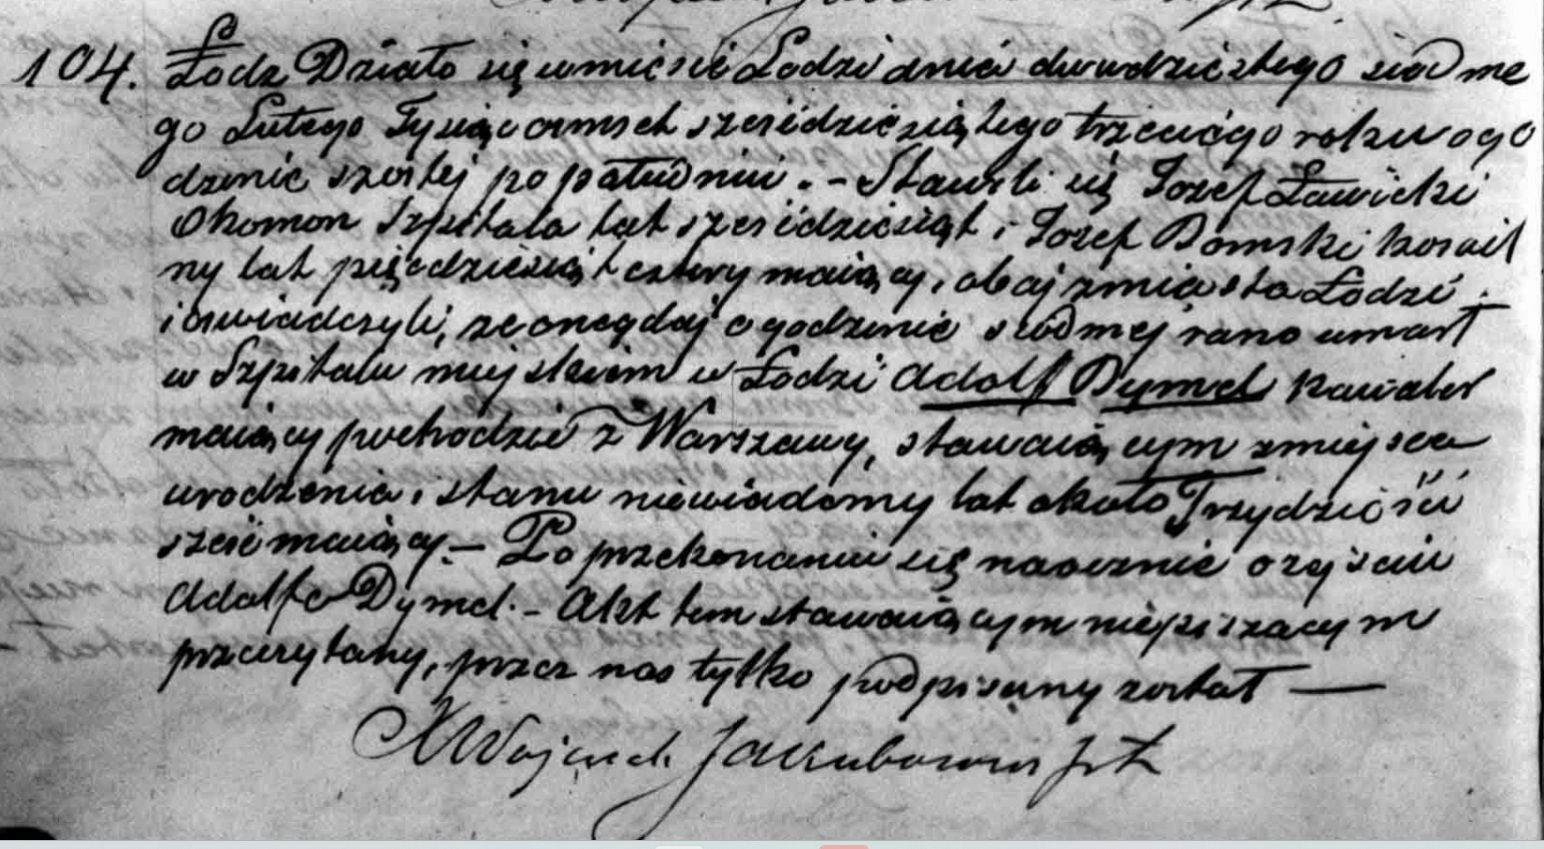 104. Łodz Działo się w mieście Łodzi dnia dwudziestego siodme
go Lutego Tysiąc ośmset sześćdziesiątego trzeciego roku o go
dzinie szóstej po południu. – Stawili się Jozef Ławicki
Okomon Szpitala lat sześćdziesiąt i Jozef Domski kościel
ny lat pięćdziesiąt cztery maiący, obaj z miasta Łodzi
i oświadczyli, że onegdaj o godzinie siodmej rano umarł
w Szpitalu miejskiem w Łodzi Adolf Dymel kawaler
maiący pochodzić z Warszawy, stawaiącym z miejsca
urodzenia i stanu niewiadomy lat około Trzydzieści
sześć maiący. – Po przekonaniu się naocznie o zejściu
Adolfa Dymel. – Akt ten stawaiącym niepiszącym
przeczytany, przez nas tylko podpisany został —
X Wojciech Jakubowicz